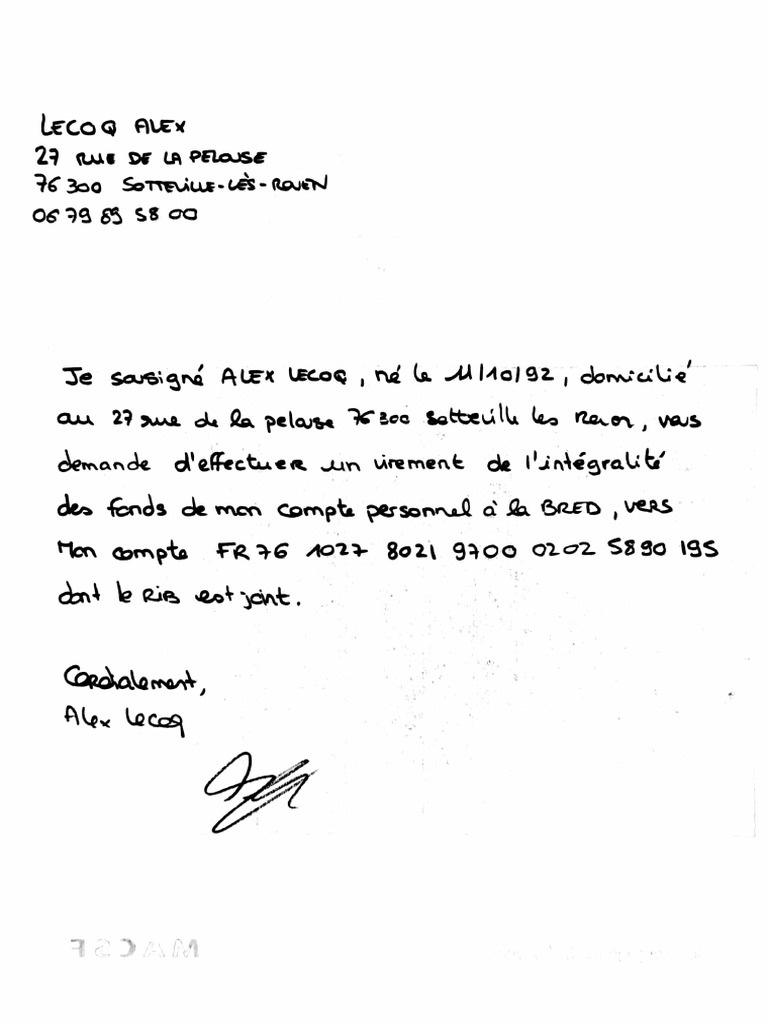 LECOQ ALEX
27 RUE DE LA PELOUSE
76 300 SOTTEVILLE-LÈS-ROUEN
06 79 89 58 00
Je sousigné ALEX LECOQ, né le 11/10/92, domicilié
au 27 rue de la pelouse 76 300 Sotteville les Rouen, vous
demande d'effectuer un virement de l'intégralité
des fonds de mon compte personnel à la BRED, VERS
Mon compte FR76 1027 8021 9700 0202 5890 195
dont le RIB est joint.
Cordialement,
Alex Lecoq
MACSF